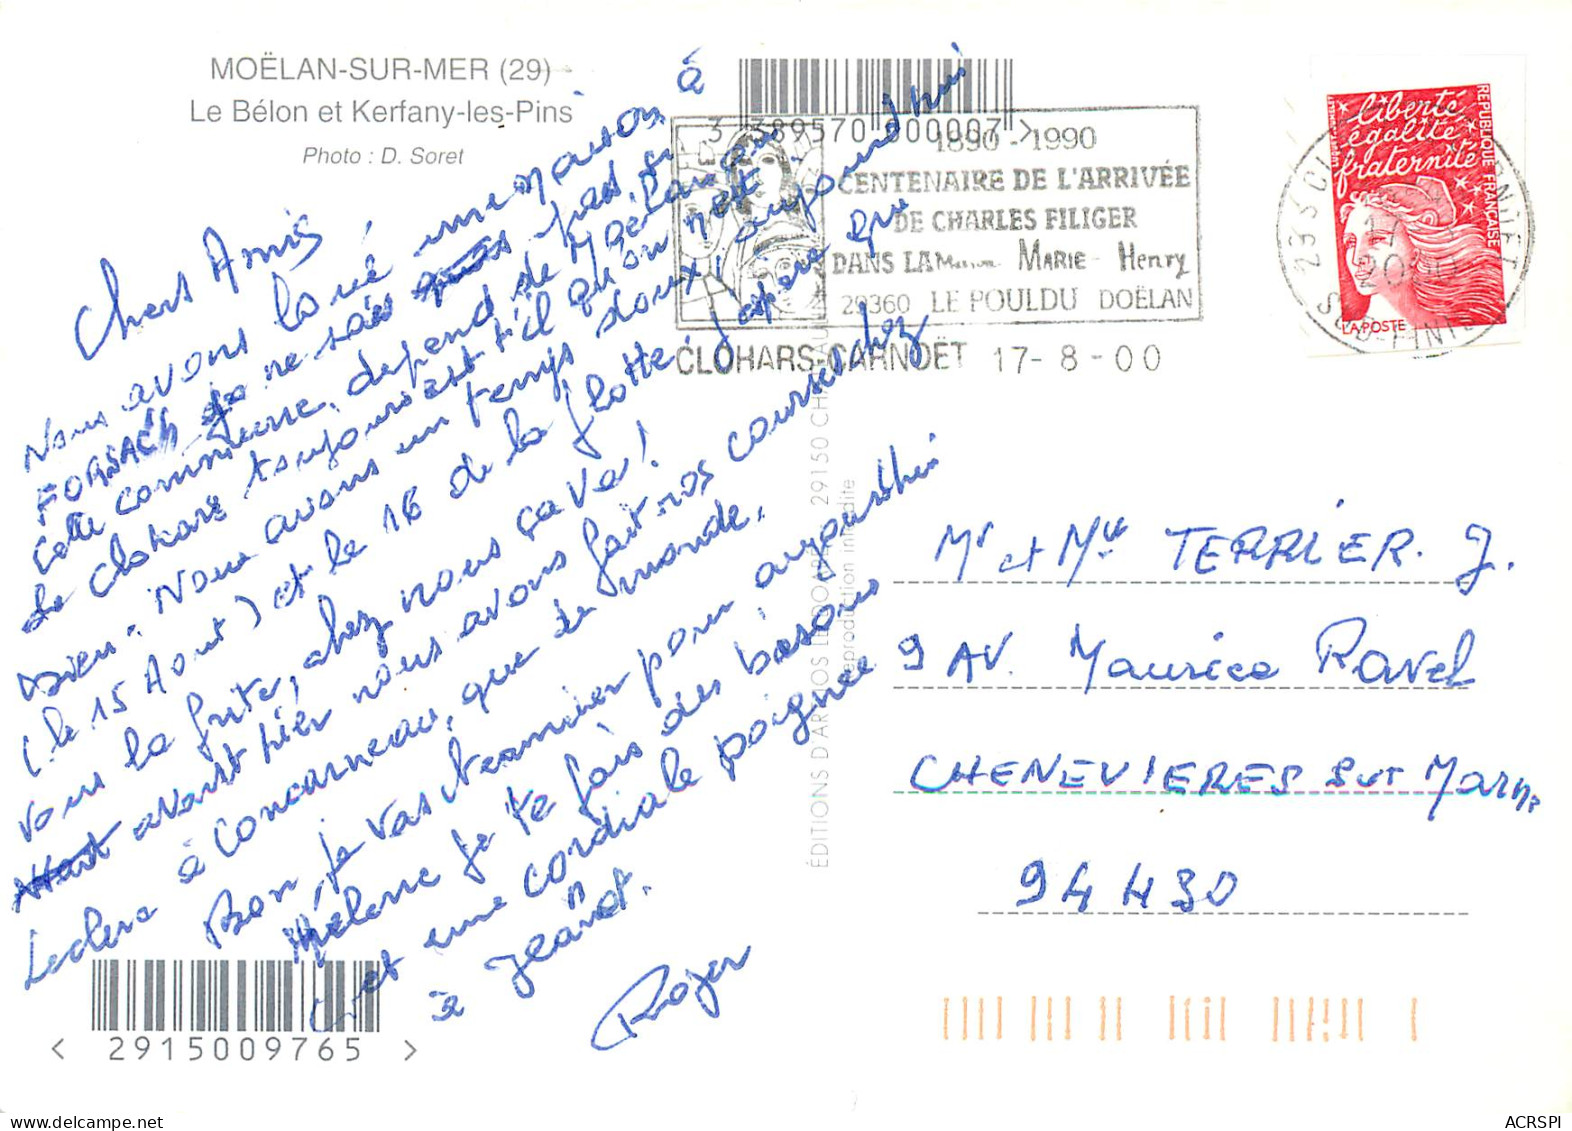 MOËLAN-SUR-MER (29)
Le Bélon et Kerfany-les-Pins
Photo : D. Soret
3 389570 000007 >
1890 - 1990
CENTENAIRE DE L'ARRIVÉE
DE CHARLES FILIGER
DANS LA Maison MARIE - Henry
29360 LE POULDU DOËLAN
CLOHARS-CARNOËT 17- 8 - 00
liberté
égalité
fraternité
REPUBLIQUE FRANÇAISE
LA POSTE
Chers Amis,
Nous avons loué une maison à
FORSACH je ne sais pas
cette commune, depend de Moëlan, ou
de Clohars toujours est t'il qu'on n'est
bien. Nous avons un temps doux, aujourd'hui
(le 15 Aout) et le 16 de la flotte, j'espère que
vous la frite, chez nous ça va!
avant hier nous avons fait nos courses chez
Leclerc à Concarneau, que de monde.
Bon, je vais terminer pour aujourd'hui
Hélène je te fais des bisous
et une cordiale poignée
à Jeannot.
Roger
ÉDITIONS D'ART JOS LE DOARÉ 29150 CHÂTEAULIN
reproduction interdite
Mr et Mme TERRIER. J.
9 AV. Maurice Ravel
CHENEVIERES sur Marne
94430
< 2915009765 >
ACRSPI